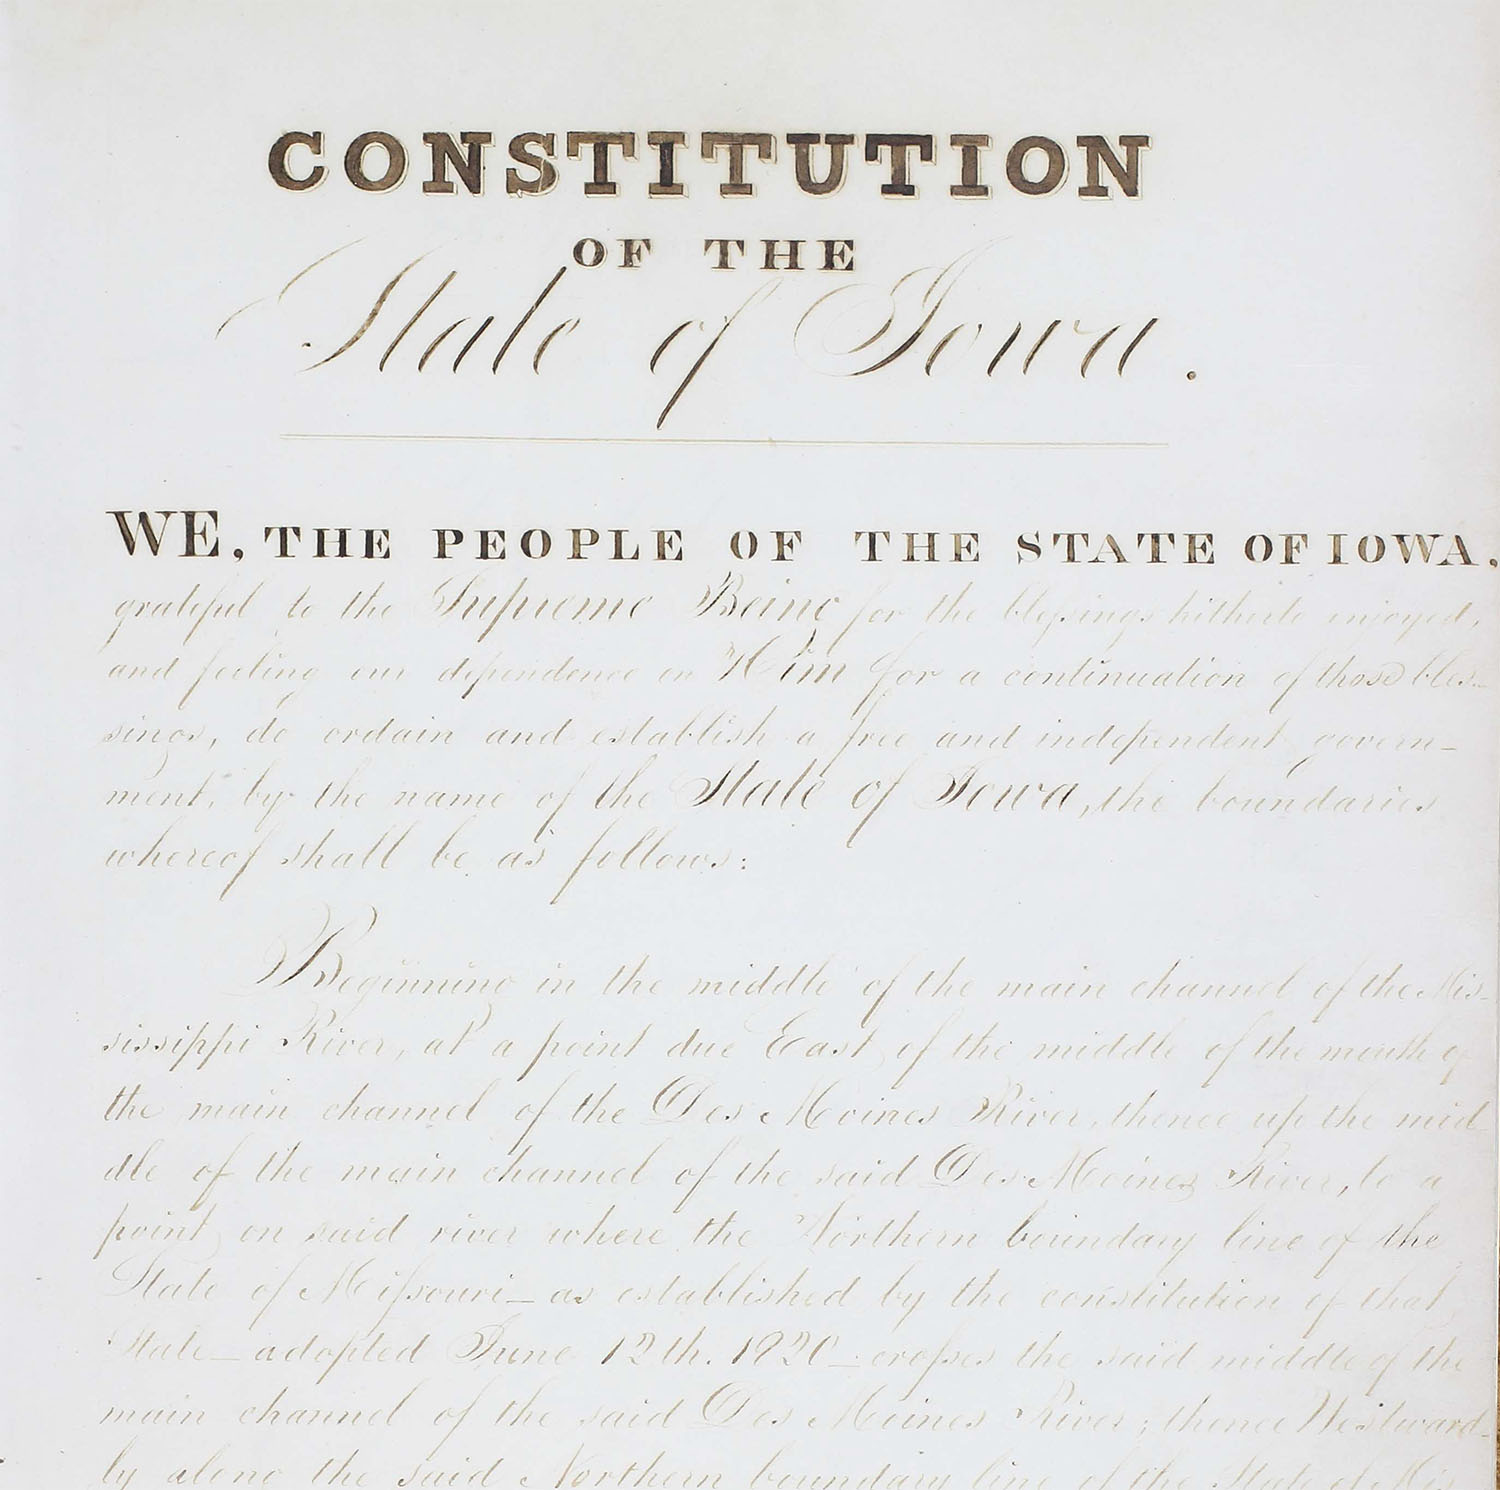 CONSTITUTION
OF THE
State of Iowa.
WE, THE PEOPLE OF THE STATE OF IOWA,
grateful to the Supreme Being for the blessings hitherto enjoyed,
and feeling our dependence on Him for a continuation of those bles-
sings, do ordain and establish a free and independent govern-
ment, by the name of the State of Iowa, the boundaries
whereof shall be as follows:
Beginning in the middle of the main channel of the Mis-
sissippi River, at a point due East of the middle of the mouth of
the main channel of the Des Moines River, thence up the mid-
dle of the main channel of the said Des Moines River, to a
point on said river where the Northern boundary line of the
State of Missouri—as established by the constitution of that
State—adopted June 12th. 1820—crosses the said middle of the
main channel of the said Des Moines River; thence Westward-
ly along the said Northern boundary line of the State of Mis